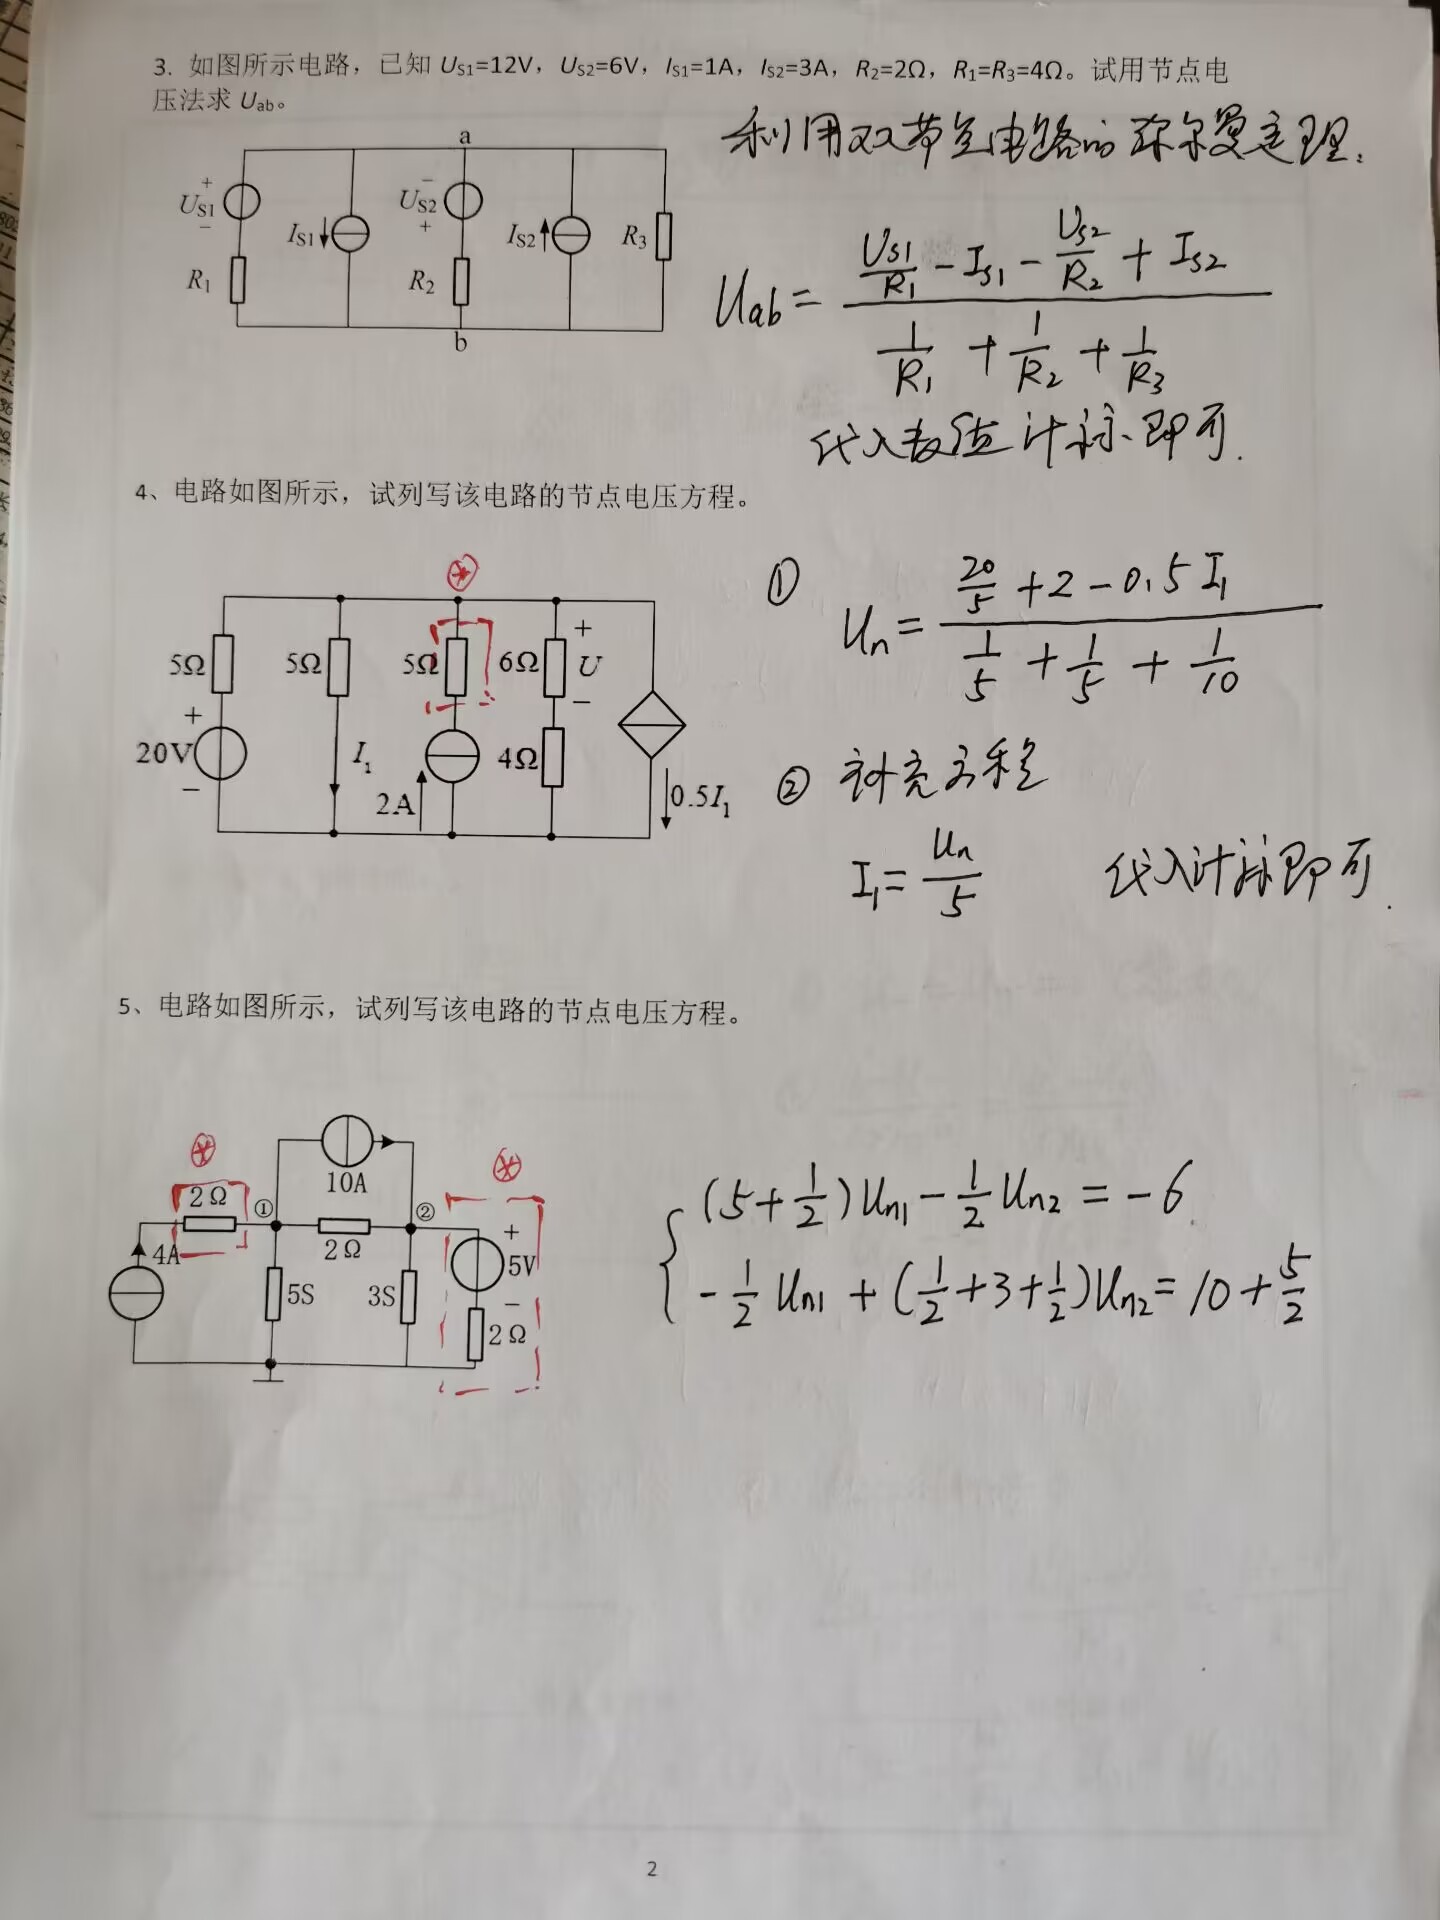 3. 如图所示电路，已知 US1=12V，US2=6V，IS1=1A，IS2=3A，R2=2Ω，R1=R3=4Ω。试用节点电
压法求 Uab。
利用双节点电路的弥尔曼定理.
a
+
US1
−
R1
IS1
−
US2
+
R2
IS2
R3
b
Uab = (US1/R1 - IS1 - US2/R2 + IS2) / (1/R1 + 1/R2 + 1/R3)
代入数值计算即可.
4、电路如图所示，试列写该电路的节点电压方程。
5Ω
5Ω
5Ω
6Ω
+
U
−
+
20V
−
I1
2A
4Ω
0.5I1
① Un = (20/5 + 2 - 0.5I1) / (1/5 + 1/5 + 1/10)
② 补充方程
I1 = Un/5 代入计算即可.
5、电路如图所示，试列写该电路的节点电压方程。
10A
2Ω
①
2Ω
②
4A
5S
3S
+
5V
−
2Ω
(5+1/2)Un1 - 1/2 Un2 = -6
-1/2 Un1 + (1/2+3+1/2)Un2 = 10 + 5/2
2